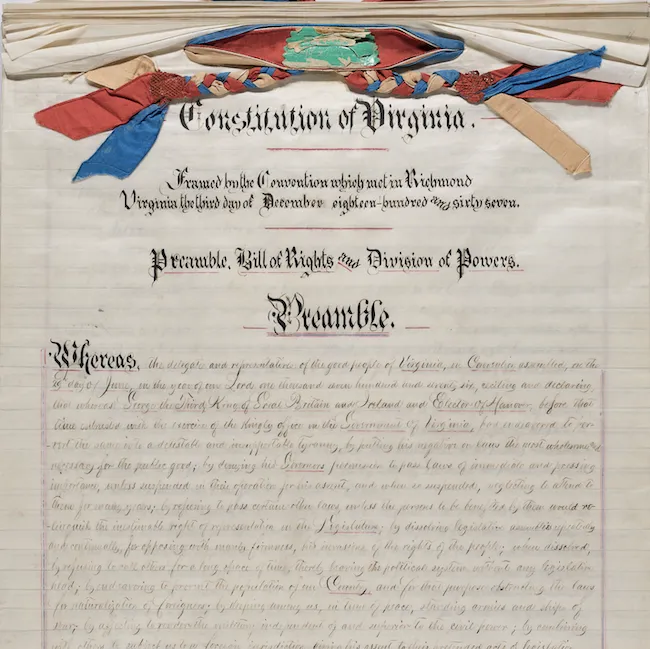 Constitution of Virginia.
Framed by the Convention which met in Richmond
Virginia the third day of December eighteen-hundred and sixty seven.
Preamble, Bill of Rights and Division of Powers.
Preamble.
Whereas, the delegates and representatives of the good people of Virginia, in Convention assembled, on the
day of June, in the year of our Lord one thousand seven hundred and seventy six, reciting and declaring
that whereas George the Third, King of Great Britain and Ireland and Elector of Hanover, before that
time intrusted with the exercise of the kingly office in the Government of Virginia, had endeavored to per-
vert the same into a detestable and insupportable tyranny, by putting his negative on laws the most wholesome and
necessary for the public good; by denying his Governors permission to pass laws of immediate and pressing
importance, unless suspended in their operation for his assent, and when so suspended, neglecting to attend to
them for many years; by refusing to pass certain other laws, unless the persons to be benefited by them would re-
linquish the inestimable right of representation in the Legislature; by dissolving legislative assemblies repeatedly
and continually, for opposing with manly firmness, his invasions of the rights of the people; when dissolved,
by refusing to call others for a long space of time, thereby leaving the political system without any legislative
head; by endeavoring to prevent the population of our Country, and for that purpose obstructing the laws
for naturalization of foreigners; by keeping among us, in time of peace, standing armies and ships of
war; by affecting to render the military independent of and superior to the civil power; by combining
with others to subject us to a foreign jurisdiction, giving his assent to their pretended acts of legislation